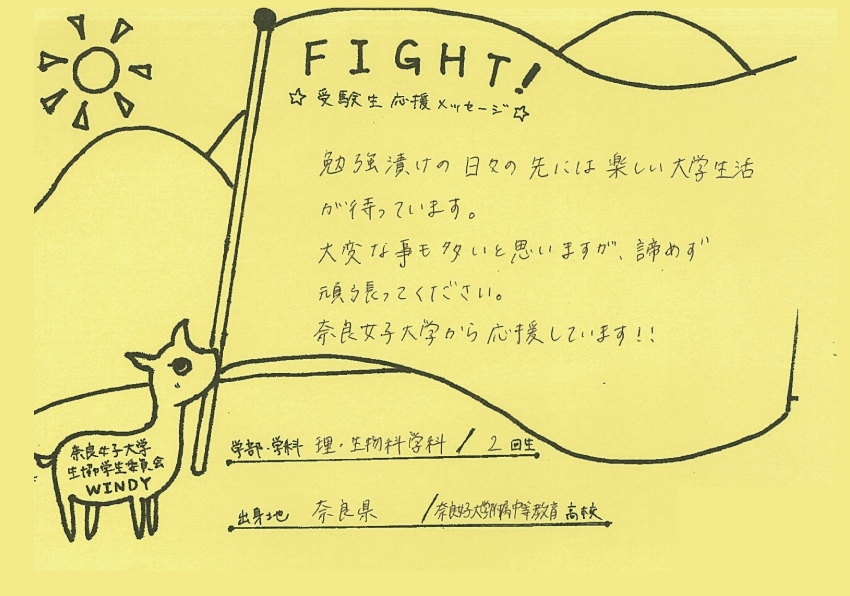 FIGHT!
☆受験生応援メッセージ☆
勉強漬けの日々の先には楽しい大学生活
が待っています。
大変な事も多いと思いますが、諦めず
頑張ってください。
奈良女子大学から応援しています!!
奈良女子大学
生協学生委員会
WINDY
学部・学科 理・生物科学科 / 2 回生
出身地 奈良県 / 奈良女子大学附属中等教育 高校